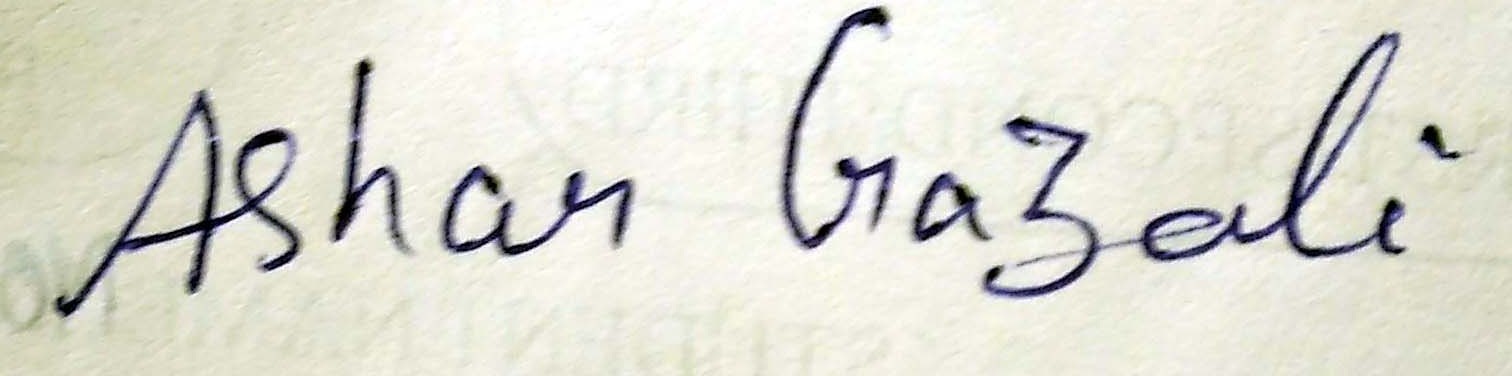 Ashar Gazali